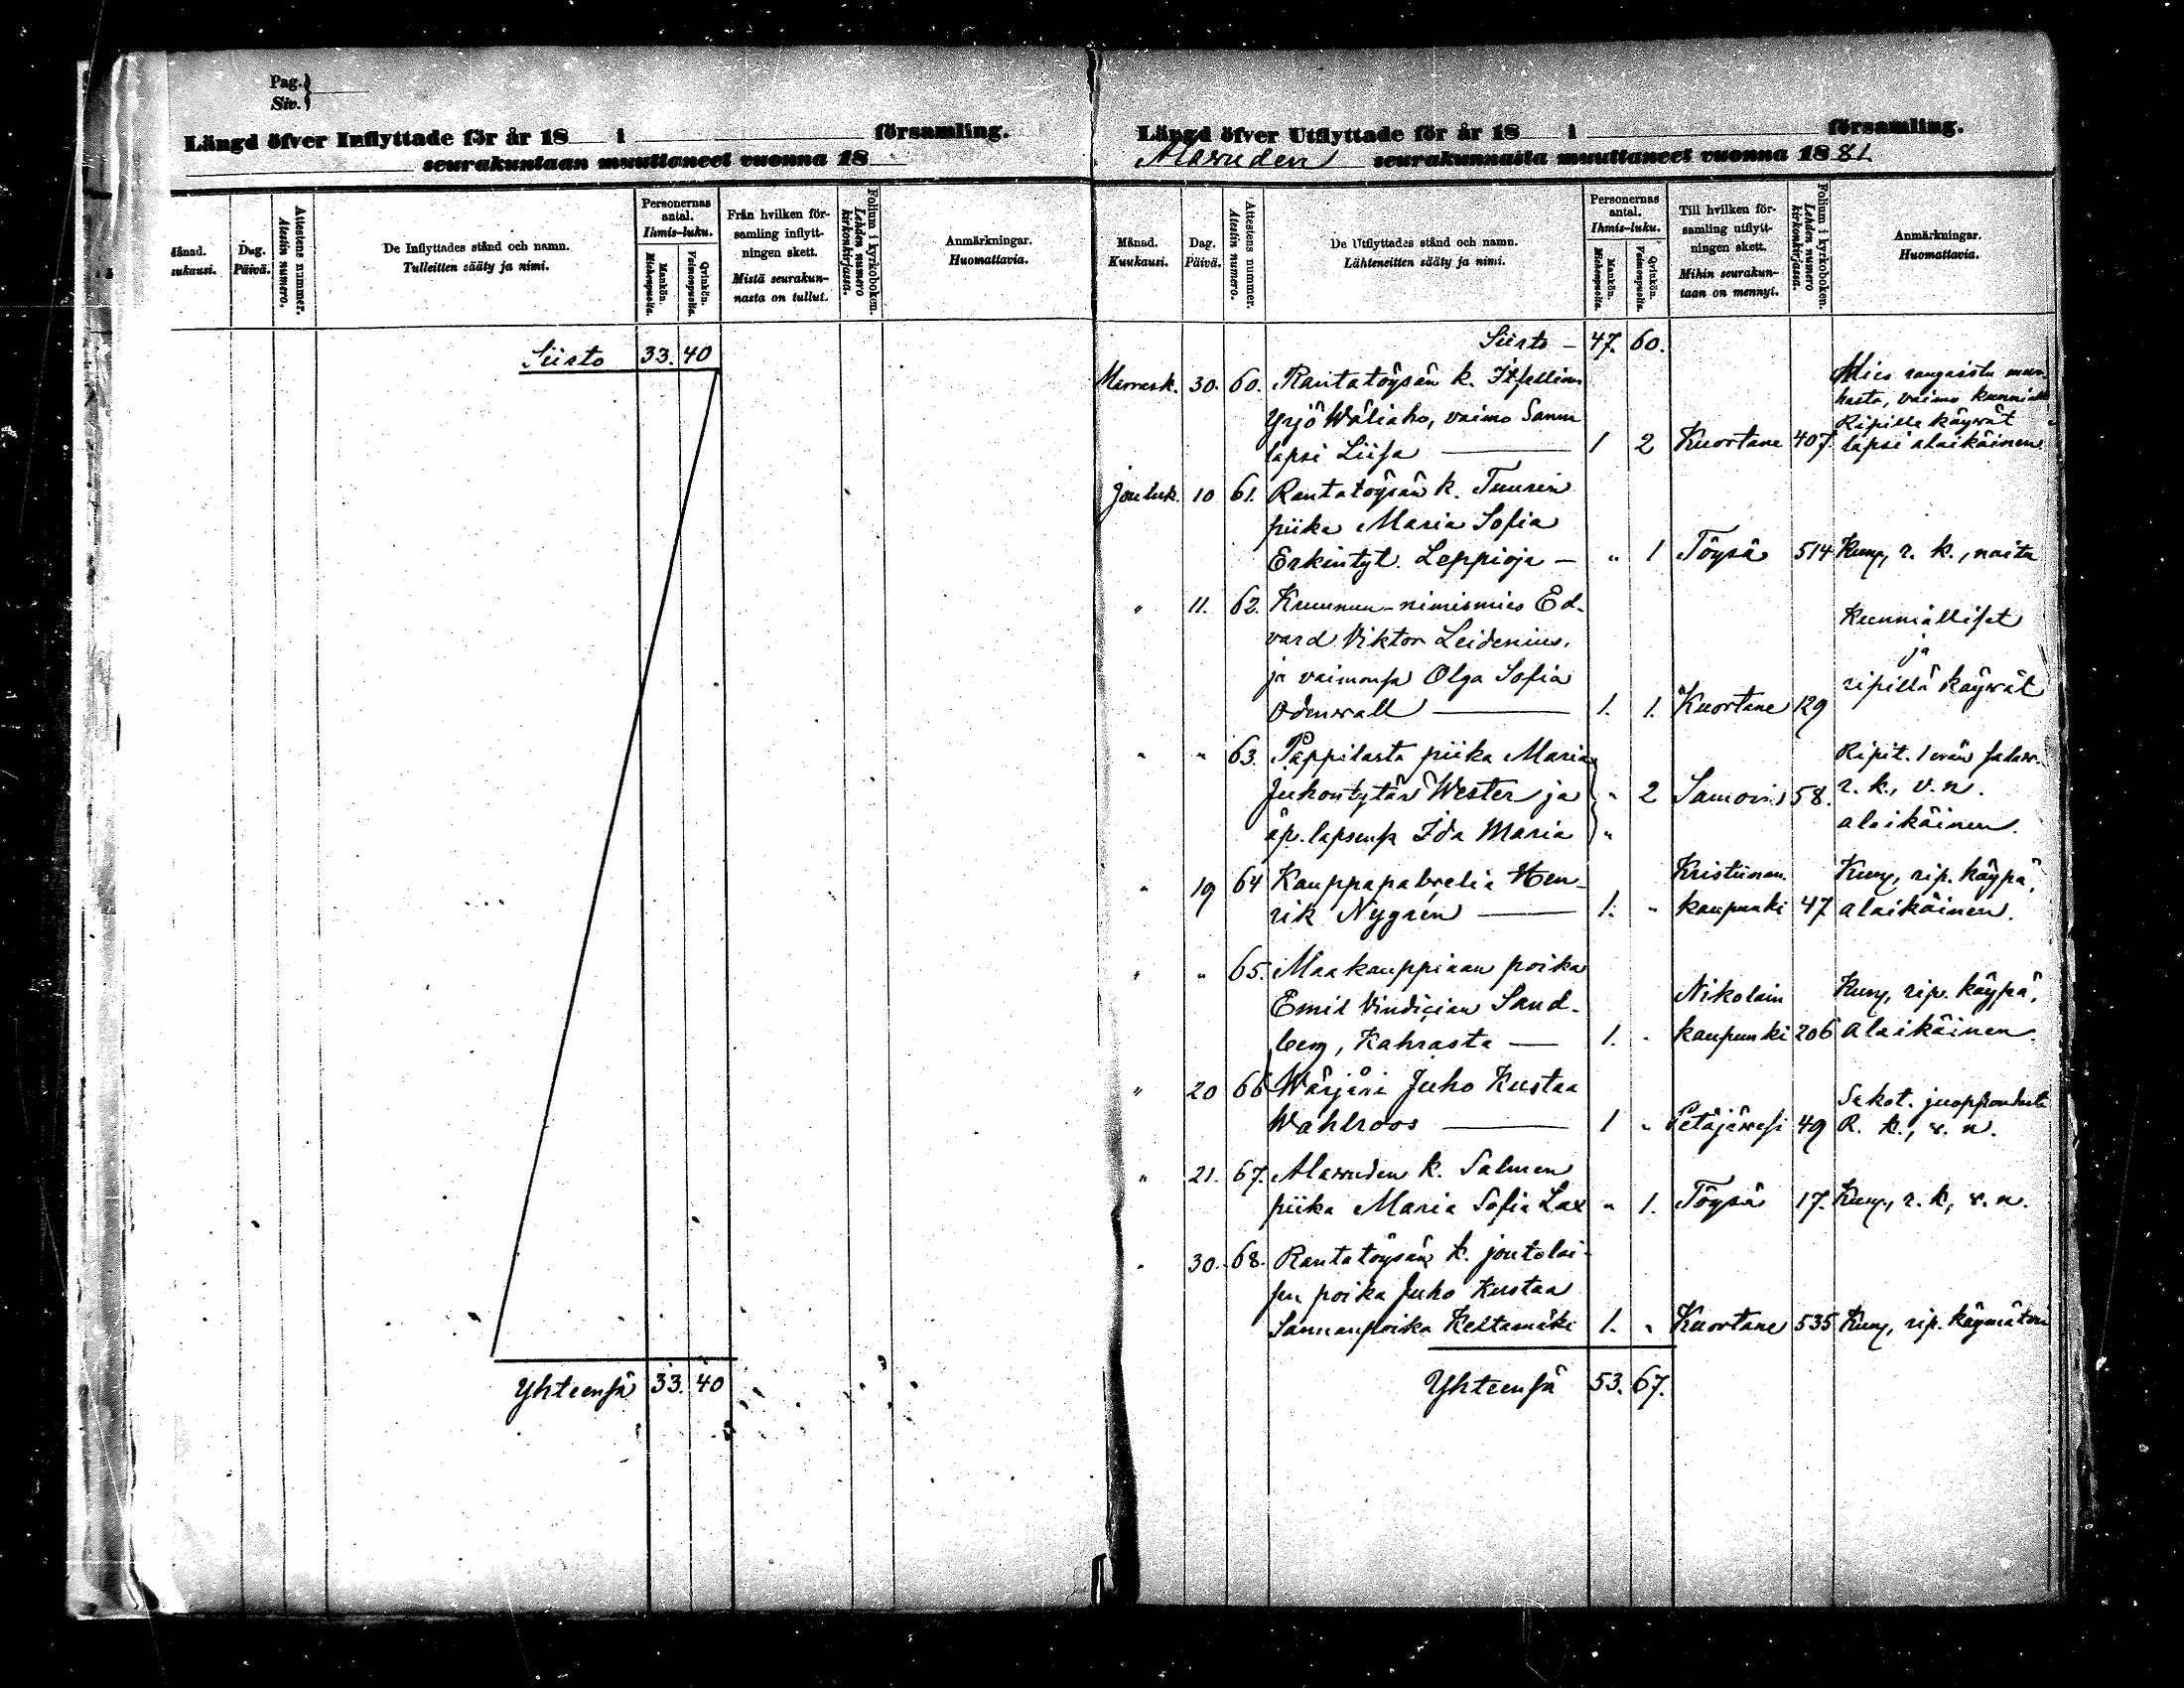 Pag.
Siv.
Längd öfver Inflyttade för år 18 i församling.
seurakuntaan muuttaneet vuonna 18
Månad. Kuukausi.
Dag. Päivä.
Attestens nummer. Atestin numero.
De Inflyttades stånd och namn.
Tulleitten sääty ja nimi.
Personernas antal. Ihmis-luku.
Mankön. Miehenpuolia.
Qvinkön. Vaimonpuolia.
Från hvilken församling inflyttningen skett.
Mistä seurakunnasta on tullut.
Folium i kyrkoboken. Lehden numero kirkonkirjassa.
Anmärkningar.
Huomattavia.
Siirto 33. 40
Yhteensä 33. 40
Längd öfver Utflyttade för år 18 i församling.
Alavuden seurakunnasta muuttaneet vuonna 1881
Månad. Kuukausi.
Dag. Päivä.
Attestens nummer. Atestin numero.
De Utflyttades stånd och namn.
Lähteneitten sääty ja nimi.
Personernas antal. Ihmis-luku.
Mankön. Miehenpuolia.
Qvinkön. Vaimonpuolia.
Till hvilken församling utflyttningen skett.
Mihin seurakuntaan on mennyt.
Folium i kyrkoboken. Lehden numero kirkonkirjassa.
Anmärkningar.
Huomattavia.
Siirto – 47. 60.
Marrask. 30. 60. Rantatöysän k. Itsellinen Mies
Yrjö Wäliaho, vaimo Sanna vaimo
Ripille käywät
lapsi Liisa — 1 2 Kuortane 407 lapsi alaikäinen
Jouluk. 10 61. Rantatöysän k. Tuurin
piika Maria Sofia
Erkintyt. Leppioja – " 1 Töysä 514 Kunn, r. k., naita
" 11. 62. Kruunun-nimismies Ed-
vard Viktor Leidenius, Kunnialliset
ja vaimonsa Olga Sofia ja
Odenwall — 1. 1. Kuortane 129 ripillä käywät
" " 63. Pappilasta piika Maria Ripit. 1
Juhontytär Wester ja " 2 58. r. k., v. n.
äp. lapsensa Ida Maria " alaikäinen.
" 19 64 Kauppapalvelia Hen- Kristiinan Kunn, rip. käypä,
rik Nygrén — 1. " kaupunki 47 alaikäinen.
" " 65. Maakauppiaan poika
Emil Vindician Sand- Nikolain Kunn, rip. käypä,
berg, Kahrasta — 1. " kaupunki 206 alaikäinen.
" 20 66 Wärjäri Juho Kustaa Sakot. juoppoudesta
Wahlroos — 1 " Petäjäwesi 49 R. k., v. n.
" 21. 67. Alavuden k. Salmen
piika Maria Sofia Lax " 1. Töysä 17. Kunn, r. k, v. n.
" 30. 68. Rantatöysän k. joutolai-
sen poika Juho Kustaa
Sannanpoika Keltamäki 1. " Kuortane 535 Kunn, rip. käymätön
Yhteensä 53. 67.